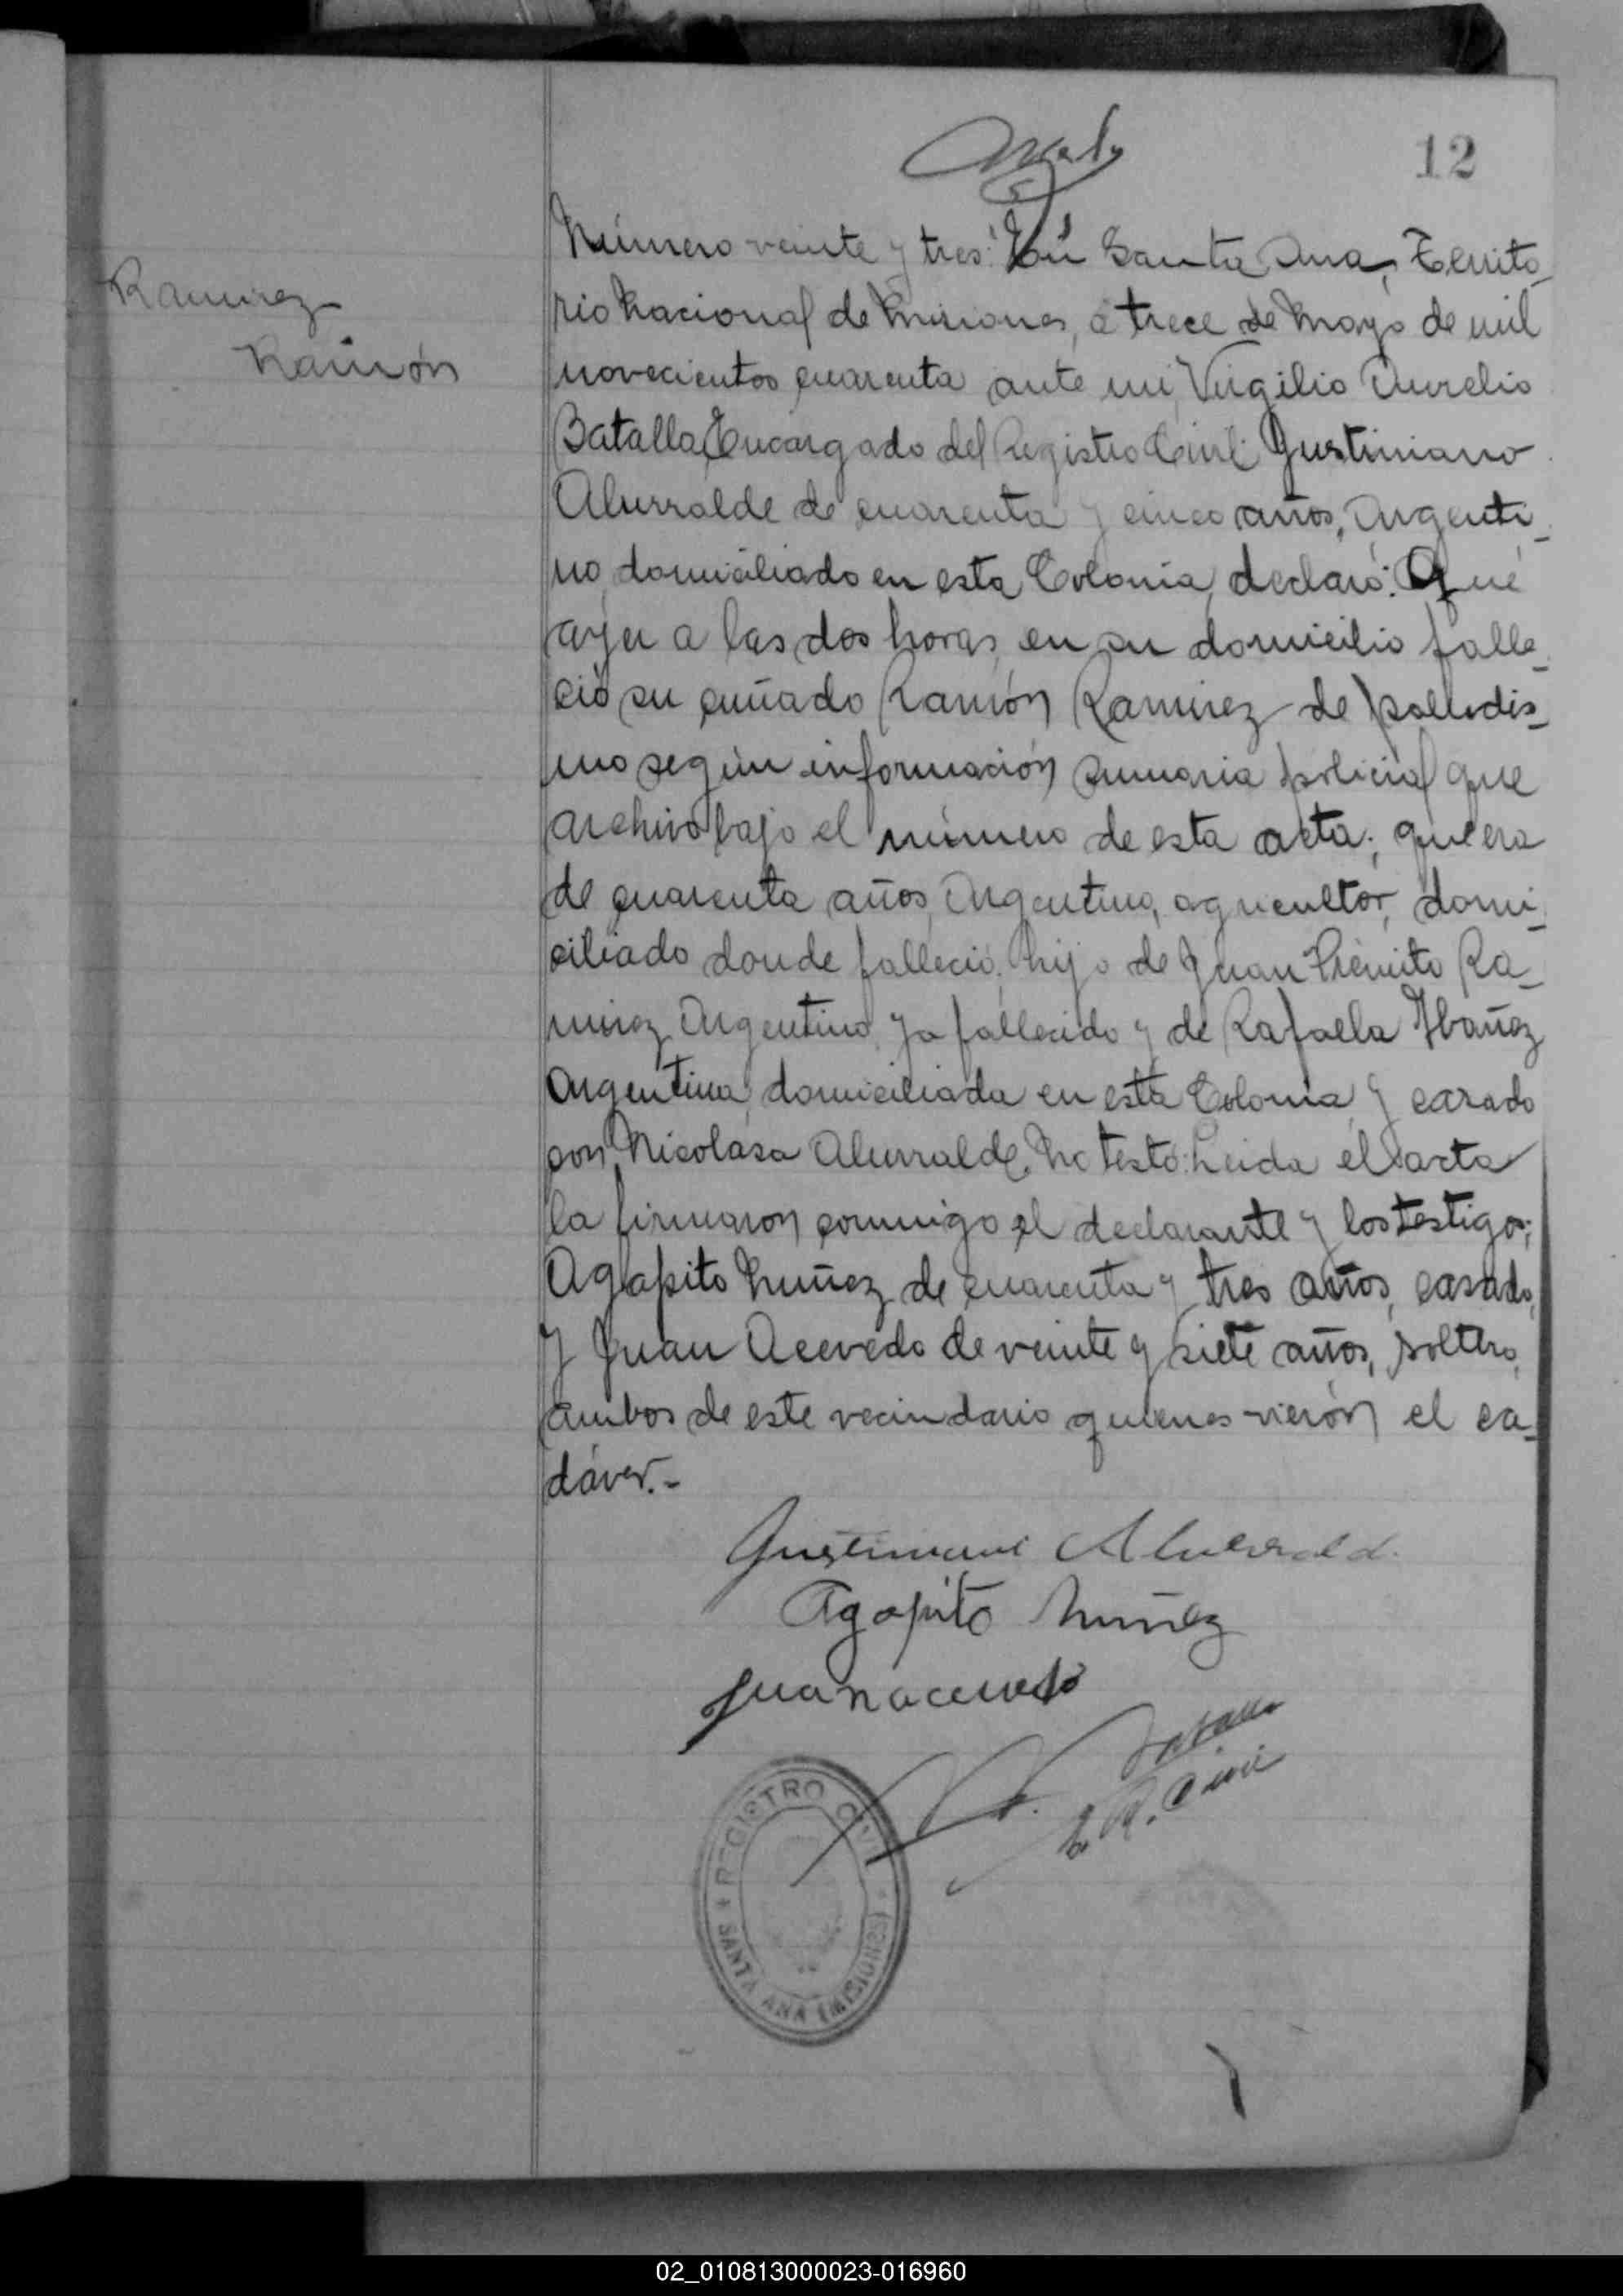 12
Ramirez
Ramón
Número veinte y tres: En Santa Ana, Territo-
rio Nacional de Misiones, á trece de Mayo de mil
novecientos cuarenta ante mi, Virgilio Aurelio
Batalla Encargado del Registro Civil: Justiniano
Alurralde de cuarenta y cinco años, Argenti-
no, domiciliado en esta Colonia, declaró: Que
ayer a las dos horas, en su domicilio falle-
ció su cuñado Ramón Ramirez de paludis-
mo según información sumaria policial que
archivo bajo el número de esta acta; que era
de cuarenta años, Argentino, agricultor, domi-
ciliado donde falleció, hijo de Juan Ra-
mirez, Argentino, ya fallecido y de Rafaela Ibañez
Argentina, domiciliada en esta Colonia, y casado
con Nicolasa Alurralde. No testó: Leida el acta
la firmaron conmigo el declarante y los testigos:
Agapito Nuñez de cuarenta y tres años, casado,
y Juan Acevedo de veinte y siete años, soltero,
ambos de este vecindario quienes vierón el ca-
dáver.-
Justiniano Alurrald.
Agapito Nuñez
Juan acevedo
Batalla
E. R. Civil
REGISTRO CIVIL
SANTA ANA (MISIONES)
02_010813000023-016960